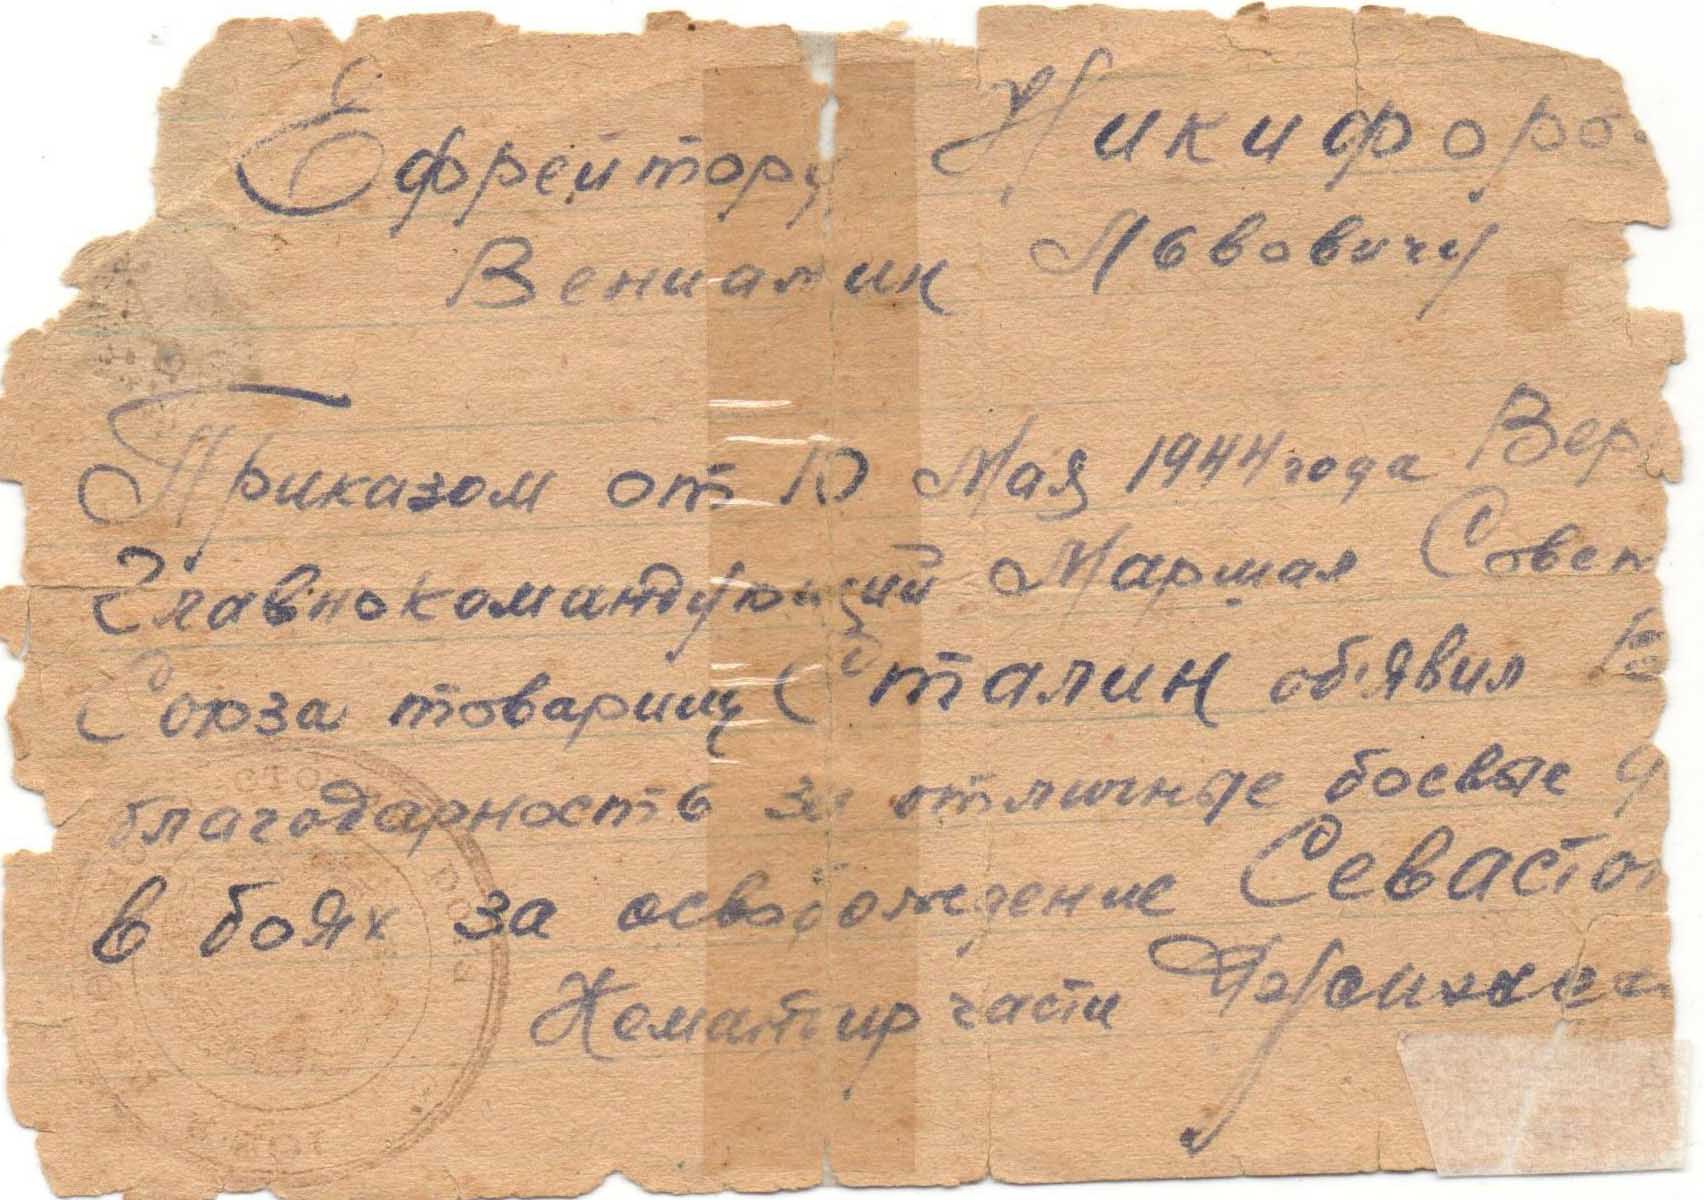 Ефрейтору Никифоров
Вениамин Львовичу
Приказом от 10 Мая 1944 года Верх
Главнокомандующий Маршал Совет
Союза товарищ Сталин об'явил В
благодарность за отличные боевые д
в боях за освобождение Севастоп
Командир части